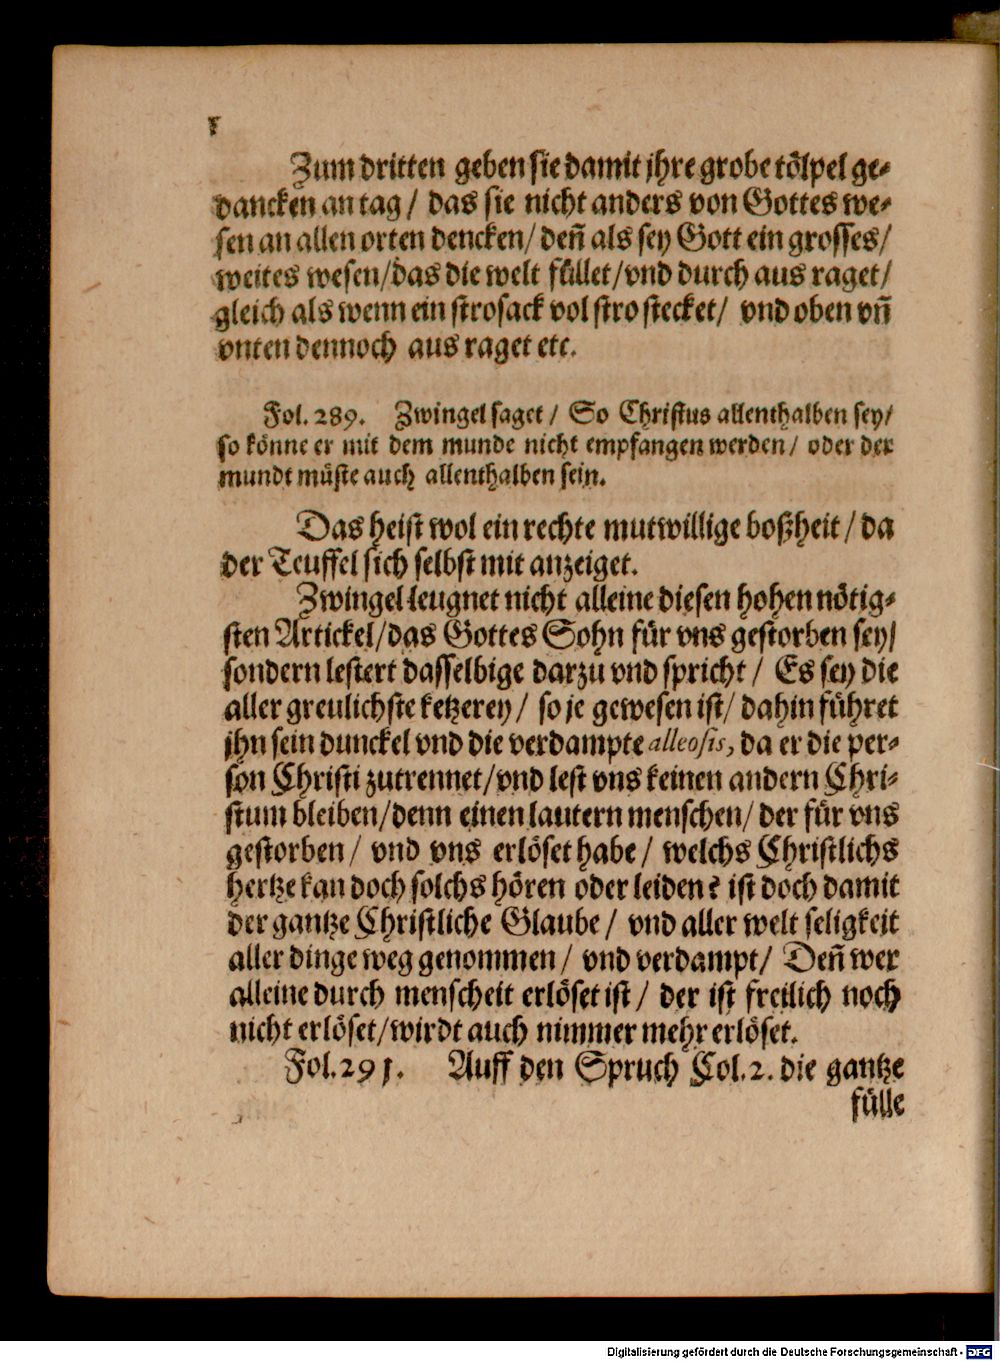 Zum dritten geben sie damit jhre grobe tölpel ge-
dancken an tag / das sie nicht anders von Gottes we-
sen an allen orten dencken / deñ als sey Gott ein grosses /
weites wesen / das die welt füllet / vnd durch aus raget /
gleich als wenn ein strosack vol stro stecket / vnd oben vñ
vnten dennoch aus raget etc.
Fol. 289. Zwingel saget / So Christus allenthalben sey /
so könne er mit dem munde nicht empfangen werden / oder der
mundt müste auch allenthalben sein.
Das heist wol ein rechte mutwillige boßheit / da
der Teuffel sich selbst mit anzeiget.
Zwingel leugnet nicht alleine diesen hohen nötig-
sten Artickel / das Gottes Sohn für vns gestorben sey /
sondern lestert dasselbige darzu vnd spricht / Es sey die
aller greulichste ketzerey / so je gewesen ist / dahin führet
jhn sein dunckel vnd die verdampte alleosis, da er die per-
son Christi zutrennet / vnd lest vns keinen andern Chri-
stum bleiben / denn einen lautern menschen / der für vns
gestorben / vnd vns erlöset habe / welchs Christlichs
hertze kan doch solchs hören oder leiden? ist doch damit
der gantze Christliche Glaube / vnd aller welt seligkeit
aller dinge weg genommen / vnd verdampt / Deñ wer
alleine durch menscheit erlöset ist / der ist freilich noch
nicht erlöset / wirdt auch nimmer mehr erlöset.
Fol. 291. Auff den Spruch Col. 2. die gantze
fülle
Digitalisierung gefördert durch die Deutsche Forschungsgemeinschaft - DFG